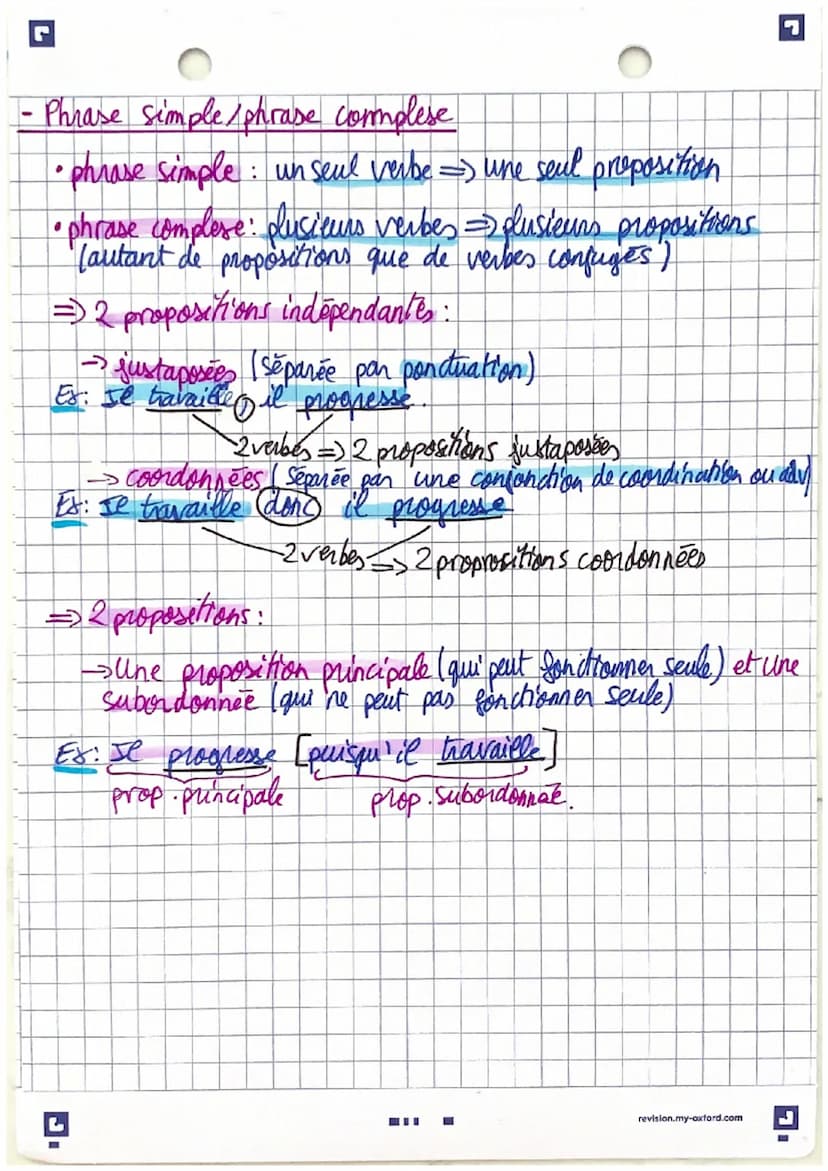 - Phrase simple/phrase commplexe
• phrase simple : un seul verbe => une seul proposition
• phrase complexe: plusieurs verbes => plusieurs propositions
(autant de propositions que de verbes conjugés)
=> 2 propositions indépendantes :
-> justaposées (séparée par ponctuation)
Ex: Il travaille, il progresse.
2 verbes => 2 propositions juxtaposées
-> coordonnées (séparée par une conjonction de coordination ou adv)
Ex: Il travaille donc il progresse
2 verbes => 2 proprositions coordonnées
=> 2 propositions :
-> Une proposition principale (qui peut fonctionner seule) et une
subordonnée (qui ne peut pas fonctionner seule)
Ex: Il progresse [puisqu'il travaille]
prop. principale prop. subordonnée.
revision.my-oxford.com